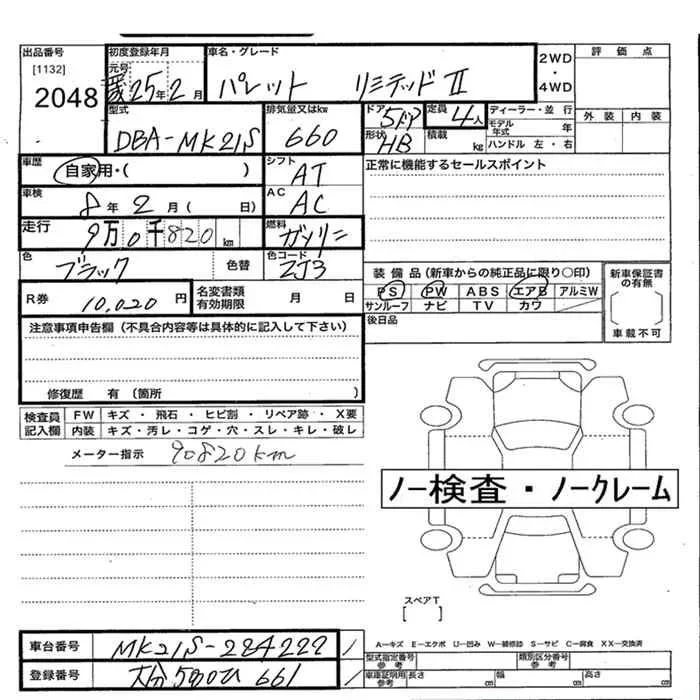 出品番号 初度登録年月 車名・グレード 2WD・4WD 評価点
[1132] 元号 25年2月 パレット リミテッドⅡ
2048
型式 排気量又はkw ドア 5ドア 定員 4人 ディーラー・並行 外装 内装
DBA-MK21S 660 形状 HB 積載 kg モデル年式 年
ハンドル 左・右
車歴 自家用・( ) シフト AT 正常に機能するセールスポイント
車検 8年2月( 日) AC AC
走行 9万0千820km 燃料 ガソリン
色 ブラック 色替 色コード ZJ3 装備品(新車からの純正品に限り○印) 新車保証書の有無
R券 10,020円 名変書類有効期限 月 日 PS PW ABS エアB アルミW
サンルーフ ナビ TV カワ
注意事項申告欄(不具合内容等は具体的に記入して下さい) 後日品 車載不可
修復歴 有(箇所 )
検査員記入欄 FW キズ・飛石・ヒビ割・リペア跡・X要
内装 キズ・汚レ・コゲ・穴・スレ・キレ・破レ
メーター指示 90820km
ノー検査・ノークレーム
スペアT
[ ]
車台番号 MK21S-284222 A-キズ E-エクボ U-凹み W-補修跡 S-サビ C-腐食 XX-交換済
型式指定番号 参考 類別区分番号 参考
登録番号 大分 580 661 車庫証明用参考 長さ cm 幅 cm 高さ cm